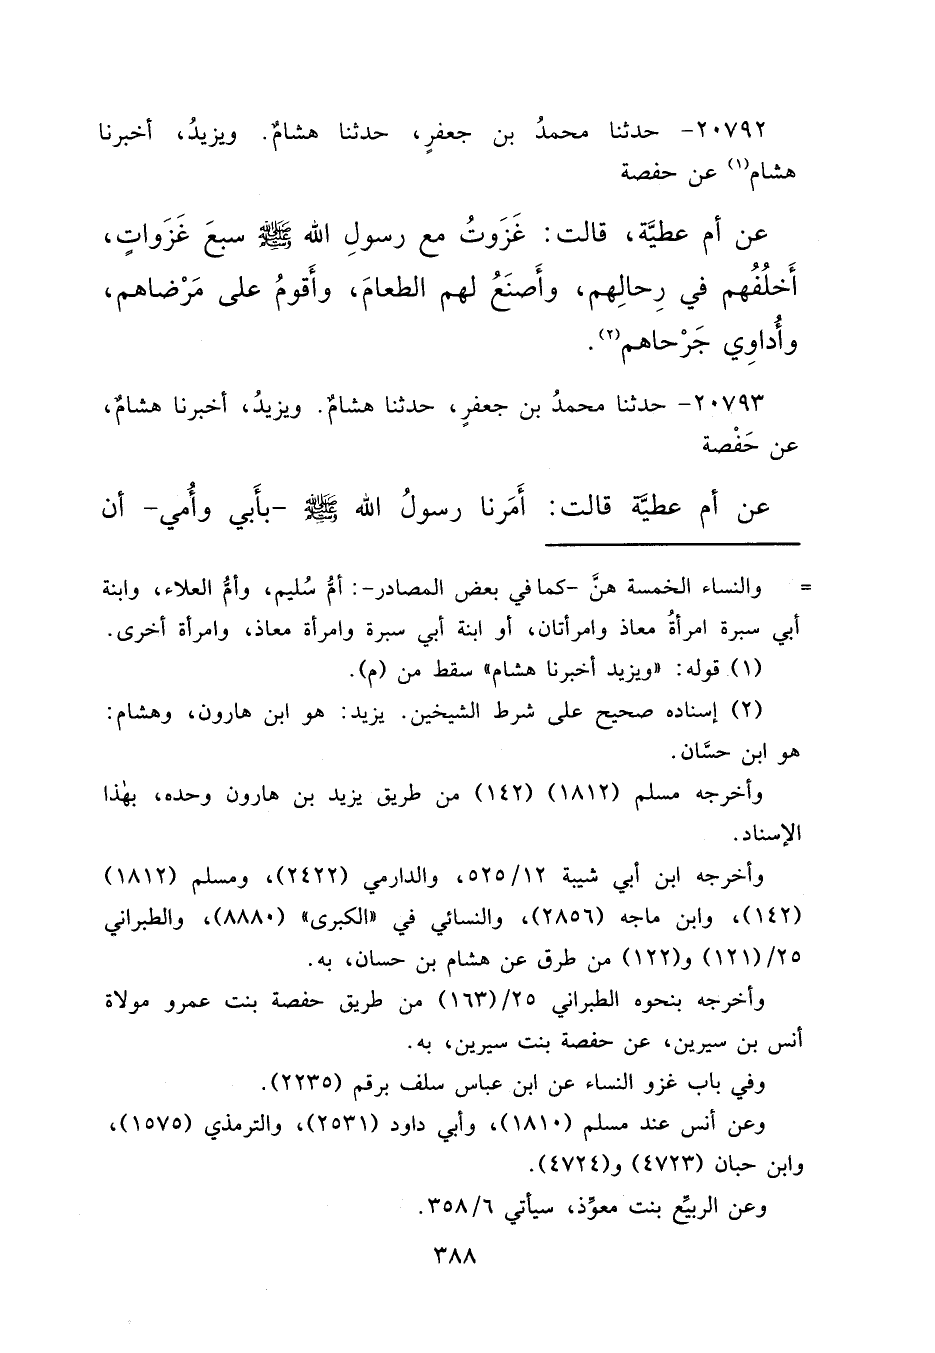 ٢٠٧٩٢- حدثنا محمدُ بن جعفرٍ، حدثنا هشامٌ. ويزيدُ، أخبرنا
هشام(١) عن حفصة
عن أم عطيَّة، قالت: غَزَوتُ مع رسولِ الله ﷺ سبعَ غَزَواتٍ،
أَخلُفُهم في رِحالِهم، وأَصنَعُ لهم الطعامَ، وأَقومُ على مَرْضاهم،
وأُداوِي جَرْحاهم(٢).
٢٠٧٩٣- حدثنا محمدُ بن جعفرٍ، حدثنا هشامٌ. ويزيدُ، أخبرنا هشامٌ،
عن حَفْصة
عن أم عطيَّة قالت: أَمَرنا رسولُ الله ﷺ -بأَبي وأُمي- أن
= والنساء الخمسة هنَّ -كما في بعض المصادر-: أمُّ سُليم، وأمُّ العلاء، وابنة
أبي سبرة امرأةُ معاذ وامرأتان، أو ابنة أبي سبرة وامرأة معاذ، وامرأة أخرى.
(١) قوله: «ويزيد أخبرنا هشام» سقط من (م).
(٢) إسناده صحيح على شرط الشيخين. يزيد: هو ابن هارون، وهشام:
هو ابن حسَّان.
وأخرجه مسلم (١٨١٢) (١٤٢) من طريق يزيد بن هارون وحده، بهٰذا
الإسناد.
وأخرجه ابن أبي شيبة ٥٢٥/١٢، والدارمي (٢٤٢٢)، ومسلم (١٨١٢)
(١٤٢)، وابن ماجه (٢٨٥٦)، والنسائي في «الكبرى» (٨٨٨٠)، والطبراني
٢٥/(١٢١) و(١٢٢) من طرق عن هشام بن حسان، به.
وأخرجه بنحوه الطبراني ٢٥/(١٦٣) من طريق حفصة بنت عمرو مولاة
أنس بن سيرين، عن حفصة بنت سيرين، به.
وفي باب غزو النساء عن ابن عباس سلف برقم (٢٢٣٥).
وعن أنس عند مسلم (١٨١٠)، وأبي داود (٢٥٣١)، والترمذي (١٥٧٥)،
وابن حبان (٤٧٢٣) و(٤٧٢٤).
وعن الربيِّع بنت معوِّذ، سيأتي ٣٥٨/٦.
٣٨٨